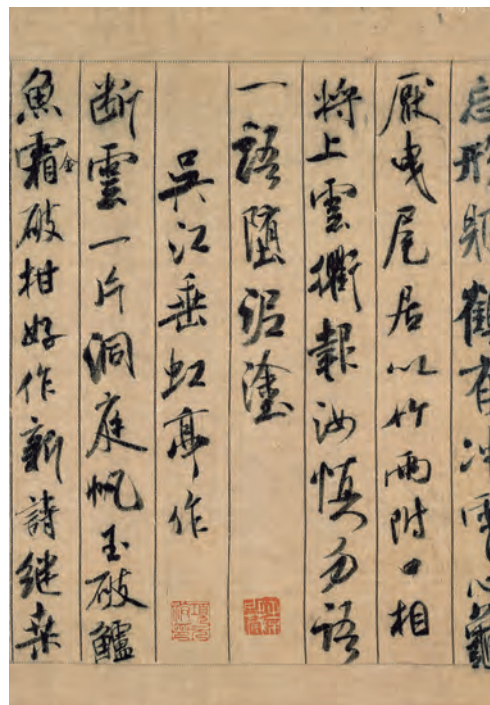 忘形軀鶴有沖霄心龜
厭曳尾居以竹兩附口相
將上雲衢報汝慎勿語
一語墮泥塗
吳江垂虹亭作
断雲一片洞庭帆玉破鱸
魚霜金破柑好作新詩継桒